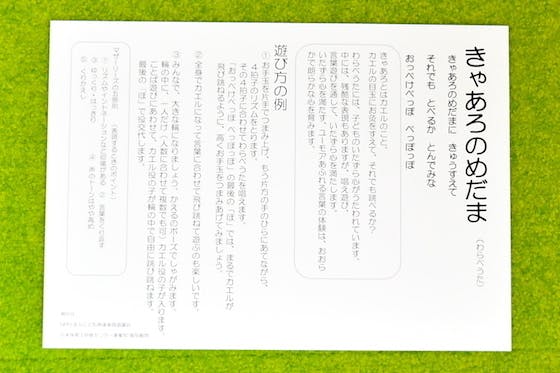 きゃあろのめだま
(わらべうた)
きゃあろのめだまに きゅうすえて
それでも とべるか とんでみな
おっぺけぺっぽ ぺっぽっぽ
きゃあろとはカエルのこと。
カエルの目玉にお灸をすえて、それでも跳べるか？
わらべうたには、子どものいたずら心がうたわれています。
中には、残酷な表現もありますが、唱え遊び、
言葉遊びを通して、いたずら心を満たします。
いたずら心を満たす、ユーモアあふれる言葉の体験は、おおら
かで朗らかな心を育みます。
遊び方の例
①お手玉を片手につまみ上げ、もう片方の手のひらにあてながら、
４拍子のリズムをとります。
その４拍子に合わせてわらべうたを唱えます。
「おっぺけぺっぽ ぺっぽっぽ」の最後の「ぽ」では、まるでカエルが
飛び跳ねるように、高くお手玉をつまみあげてみましょう。
②全身でカエルになって言葉に合わせて飛び跳ねて遊ぶのも楽しいです。
③みんなで、大きな輪になりましょう。かえるのポーズでしゃがみます。
輪の中に、一人だけ(人数に合わせて複数でも可)カエル役の子が入ります。
ことば遊びにあわせて、カエル役の子が輪の中で自由に飛び跳ねます。
最後の「ぽ」で交代します。
マザーリースの五原則
(表現するときのポイント)
① リズムやイントネーションなど抑揚がある
② 言葉をくり返す
③ ゆっくり・はっきり
④ 声のトーンはやや高め
⑤ くりかえし